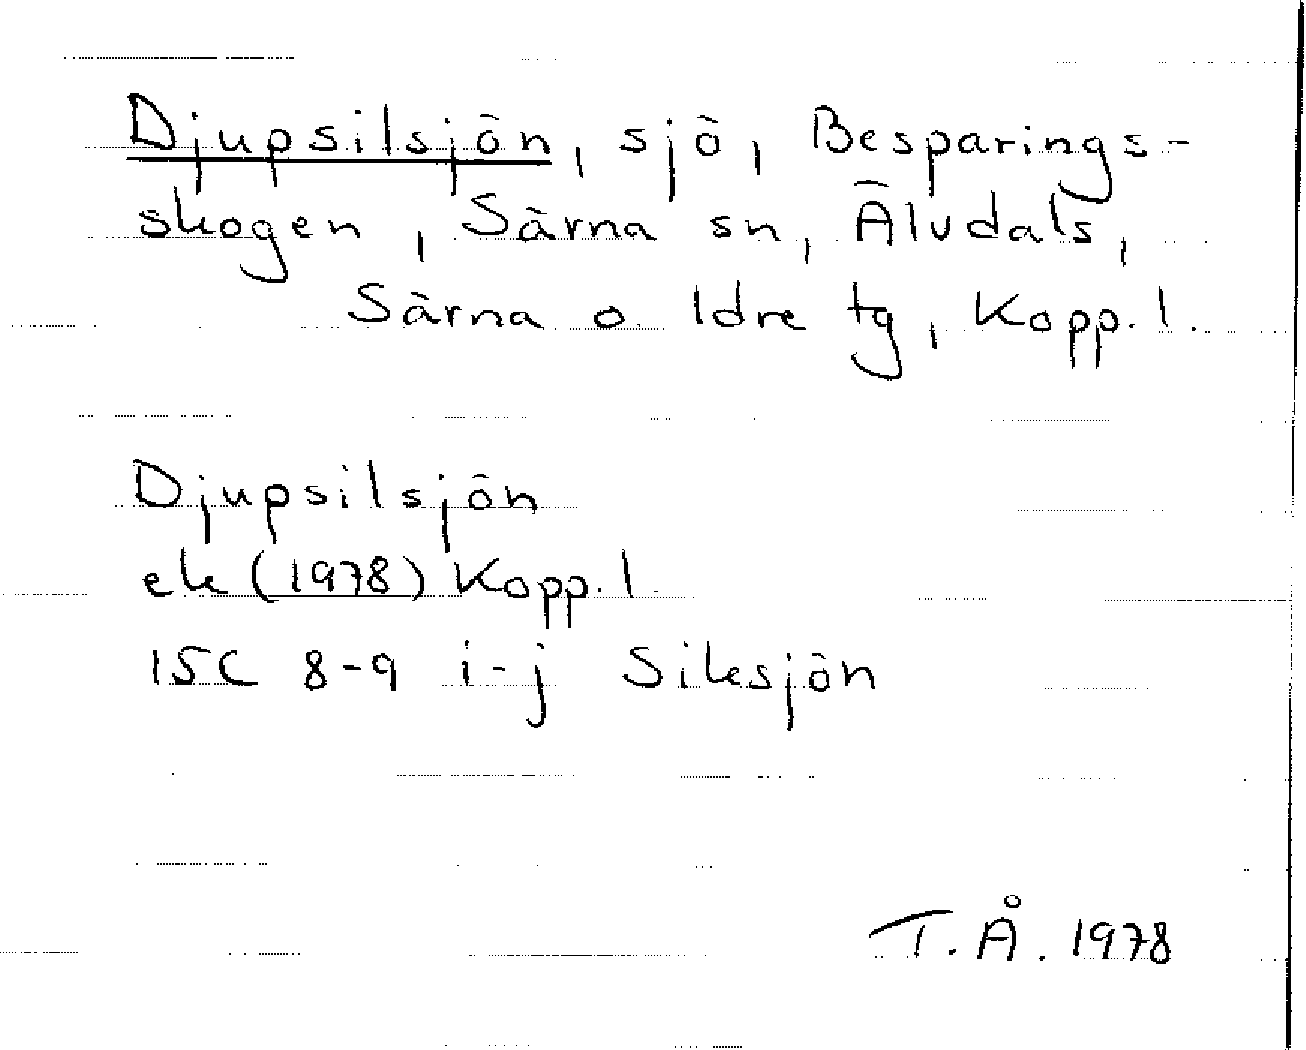 Djupsilsjön, sjö, Besparings-
skogen, Särna sn, Älvdals,
Särna o. Idre tg, Kopp. l.
Djupsilsjön
ek (1978) Kopp. l
15C 8-9 i-j Silesjön
T. Å. 1978